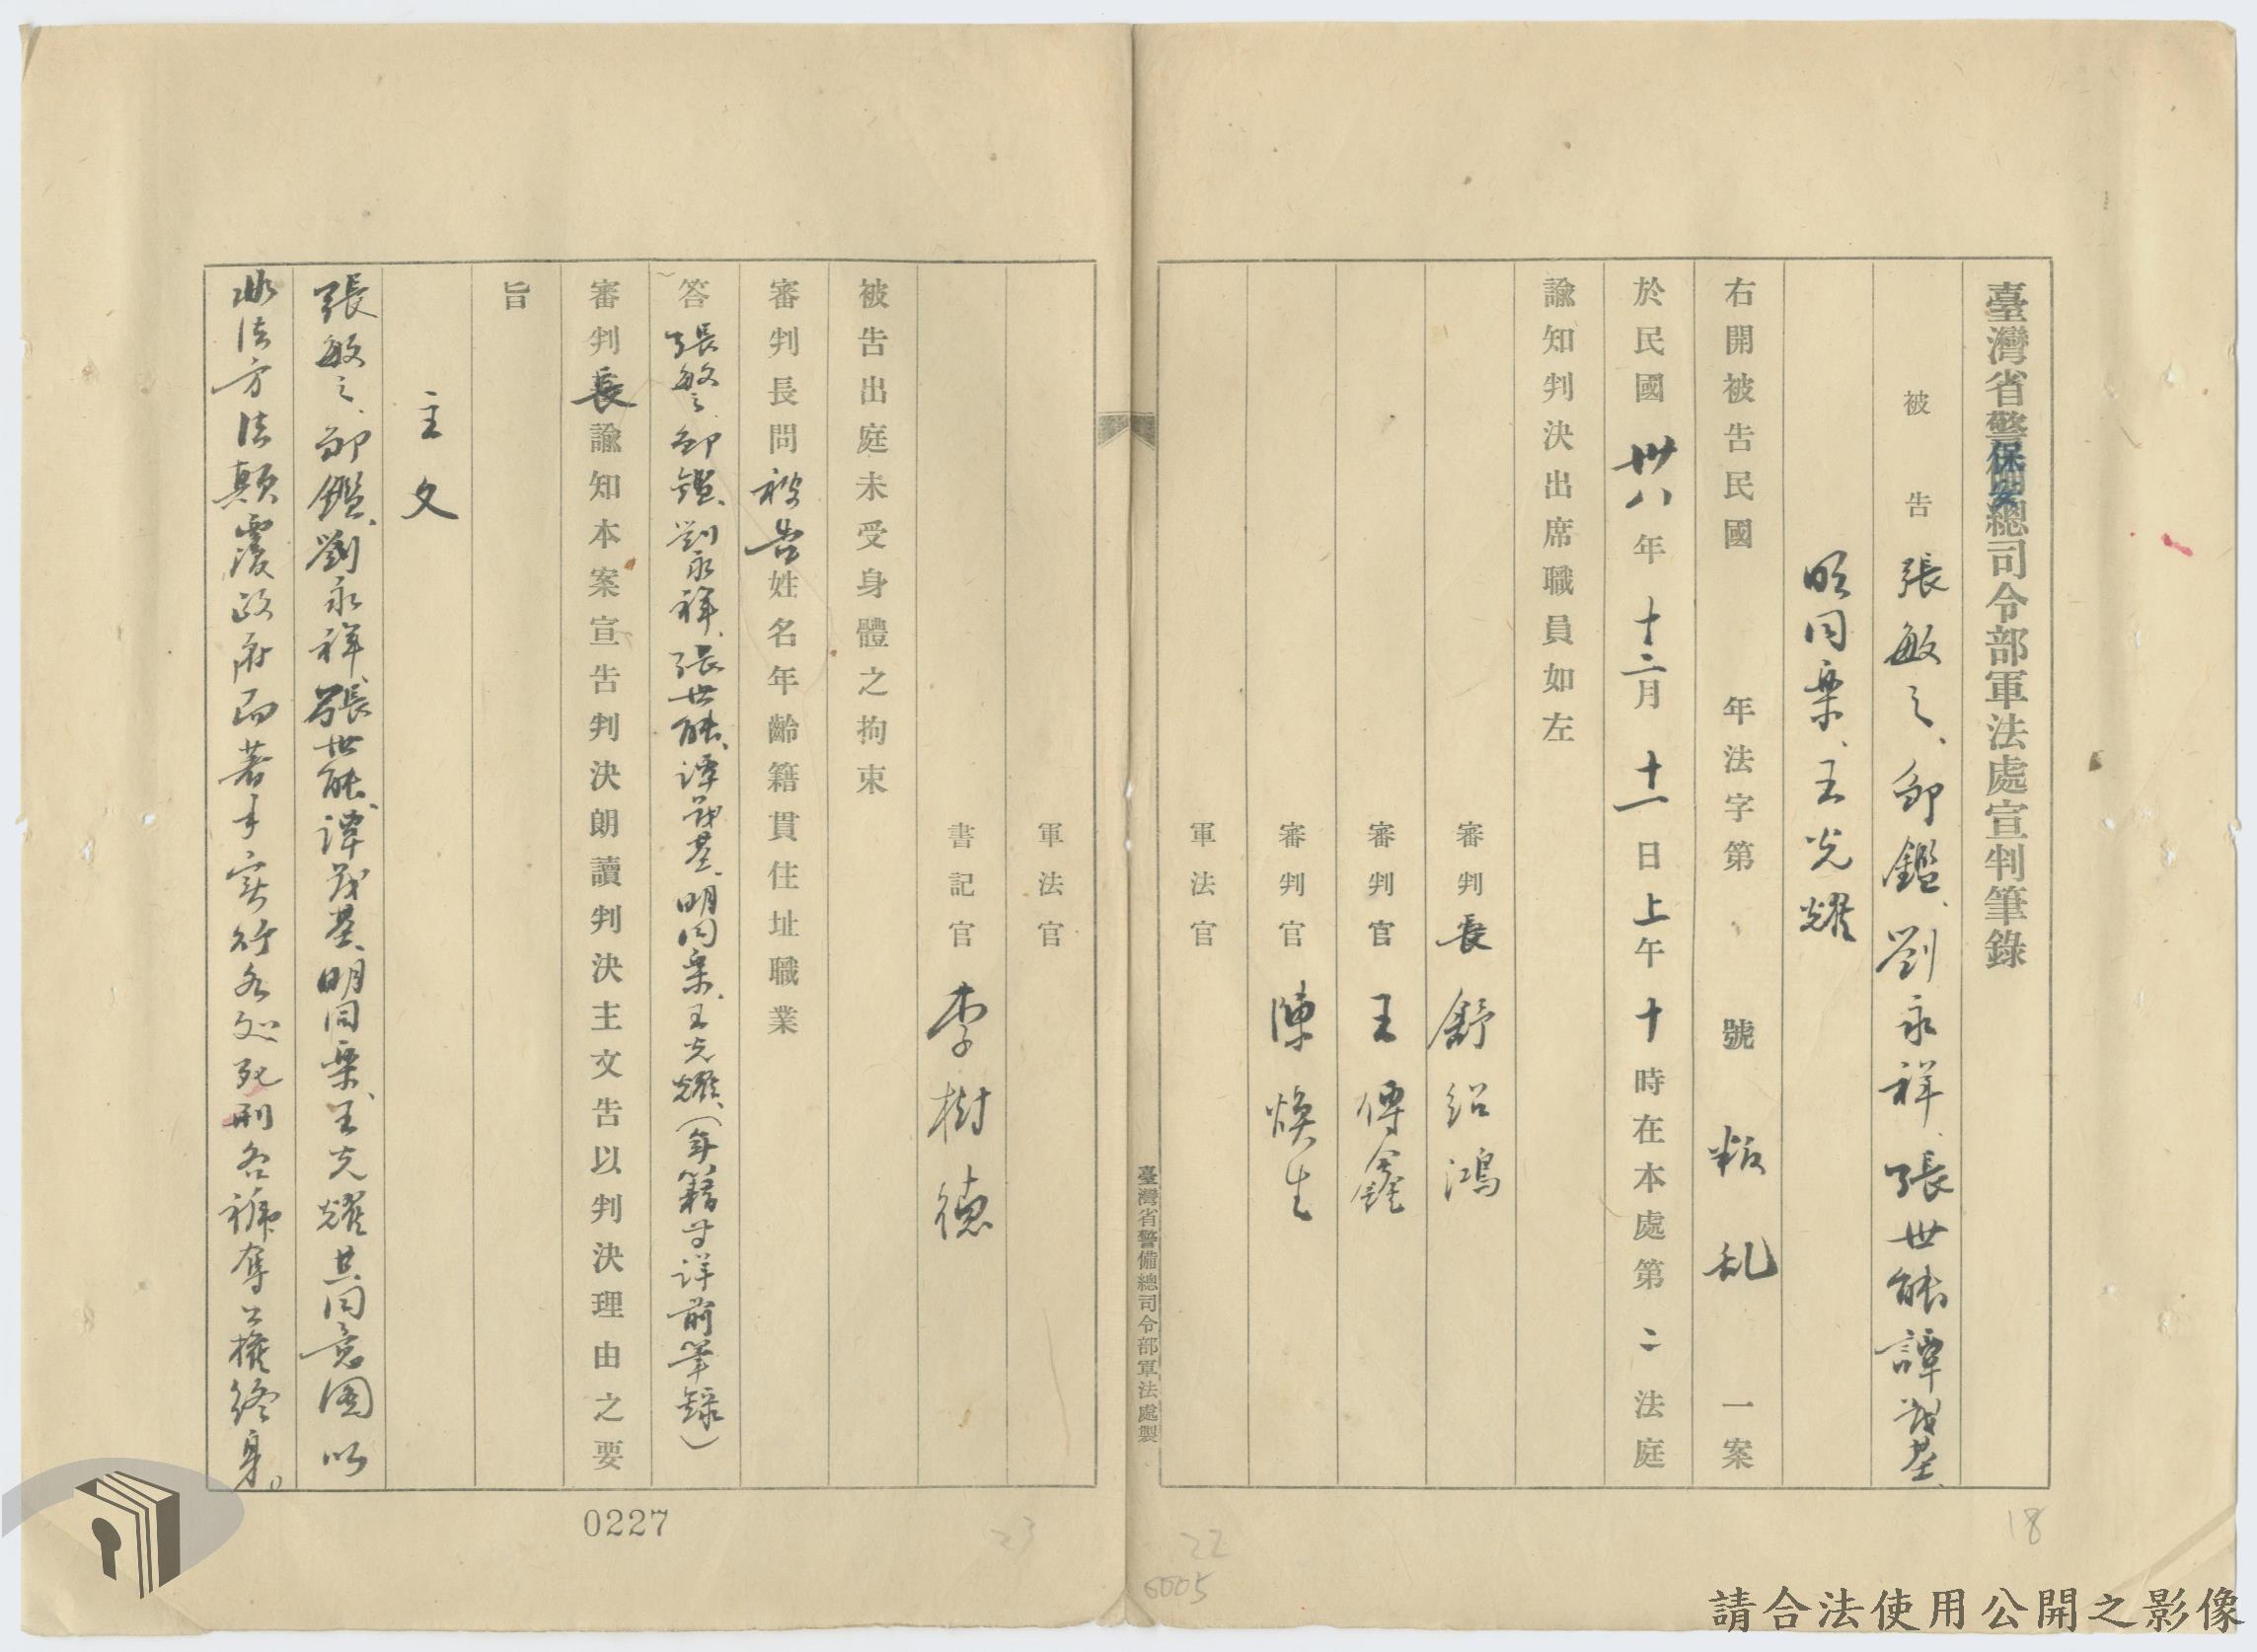 臺灣省保安總司令部軍法處宣判筆錄
被告張敏之、鄒鑑、劉永祥、張世能、譚茂基、
明同樂、王光耀
右開被告民國 年法字第 號叛乱一案
於民國卅八年十二月十一日上午十時在本處第二法庭
諭知判決出席職員如左
審判長 舒紹鴻
審判官 王傅鑫
審判官 陳煥生
軍法官
臺灣省警備總司令部軍法處製
軍法官
書記官 李樹德
被告出庭未受身體之拘束
審判長問被告姓名年齡籍貫住址職業
答張敏之、鄒鑑、劉永祥、張世能、譚茂基、明同樂、王光耀、(年籍等詳前筆錄)
審判長諭知本案宣告判決朗讀判決主文告以判決理由之要
旨
主文
張敏之、鄒鑑、劉永祥、張世能、譚茂基、明同樂、王光耀共同意圖以
非法方法顛覆政府而著手实行各処死刑各褫奪公權終身。
0227
23
22
6005
18
請合法使用公開之影像